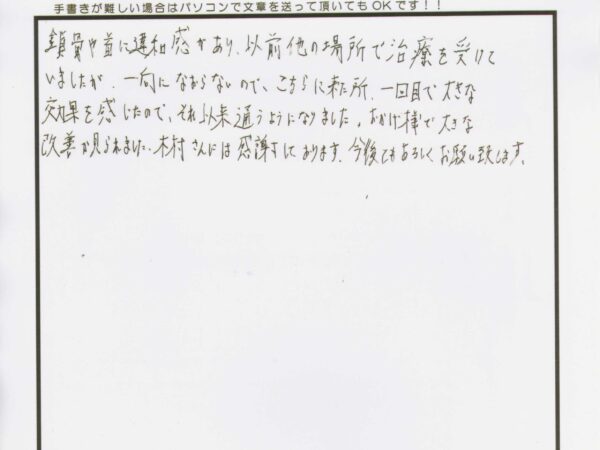 手書きが難しい場合はパソコンで文章を送って頂いてもOKです！！
鎖骨や首に違和感があり、以前他の場所で治療を受けて
いましたが、一向になおらないので、こちらに来た所、一回目で大きな
効果を感じたので、それ以来通うようになりました。おかげ様で大きな
改善が見られました。木村さんには感謝しております。今後ともよろしくお願い致します。